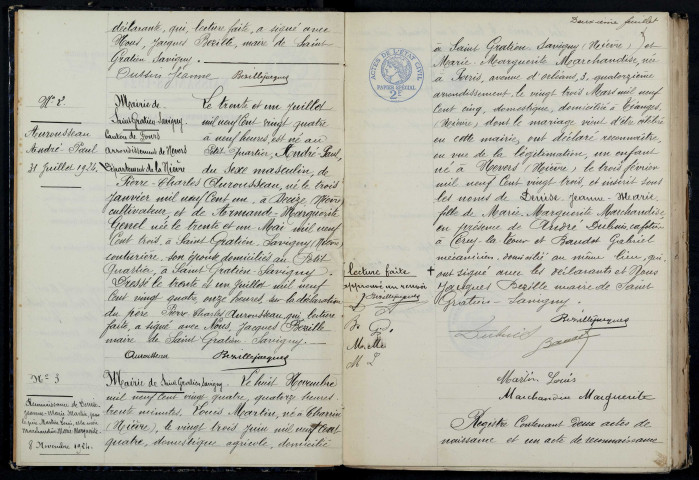 déclarante, qui, lecture faite, a signé avec
Nous, Jacques Bezille, maire de Saint
Gratien Savigny.
Bezillejacques
N° 2.
Aurousseau
André Paul
31 Juillet 1924.
Mairie de
Saint Gratien Savigny
Canton de Fours
Arrondissement de Nevers
Département de la Nièvre
Le trente et un Juillet
mil neuf cent vingt quatre
à neuf heures, est né au
Petit Quartier, André Paul,
du sexe masculin, de
Pierre Charles Aurousseau, né le trois
janvier mil neuf cent un, à Decize (Nièvre)
cultivateur, et de Armande Marguerite
Genel née le trente et un Mai mil neuf
cent trois, à Saint Gratien Savigny (Nièvre)
couturière. son épouse domiciliés au Petit
Quartier, à Saint Gratien Savigny.
Dressé le trente et un Juillet mil neuf
cent vingt quatre onze heures, sur la déclaration
du père Pierre Charles Aurousseau, qui, lecture
faite, a signé avec Nous, Jacques Bezille
maire de Saint-Gratien-Savigny.
Aurousseau Bezillejacques
N° 3
Reconnaissance de Denise
Jeanne-Marie Martin, par
8 Novembre 1924.
Mairie de Saint Gratien Savigny. Le huit Novembre
mil neuf cent vingt quatre, quatorze heures
trente minutes. Louis Martin, né à Charrin
(Nièvre), le vingt trois juin mil neuf cent
quatre, domestique agricole, domicilié
Deuxième feuillet
ACTES DE L'ETAT CIVIL
PAPIER SPECIAL
2F
à Saint Gratien-Savigny (Nièvre) et
Marie-Marguerite Marchandise, née
à Paris, avenue d'Orléans, 3. quatorzième
arrondissement, le vingt trois Mars mil neuf
cent cinq, domestique, domiciliée à Tianges
(Nièvre), dont le mariage vient d'être célébré
en cette mairie, ont déclaré reconnaître,
en vue de la légitimation, un enfant
né à Nevers (Nièvre), le trois février
mil neuf cent vingt trois, et inscrit sous
les noms de Denise Jeanne-Marie
fille de Marie-Marguerite Marchandise,
en présence de André Dubois, cafetier
à Cercy la Tour et Baudot Gabriel
mécanicien. domicilié au même lieu, qui,
lecture faite + ont signé avec les déclarants et Nous
approuvé un renvoi
Jacques Bezille maire de Saint
Gratien-Savigny.
Bezillejacques
Bezillejacques
M. L
Martin Louis
Marchandise Marguerite
Registre contenant deux actes de
naissance et un acte de reconnaissance